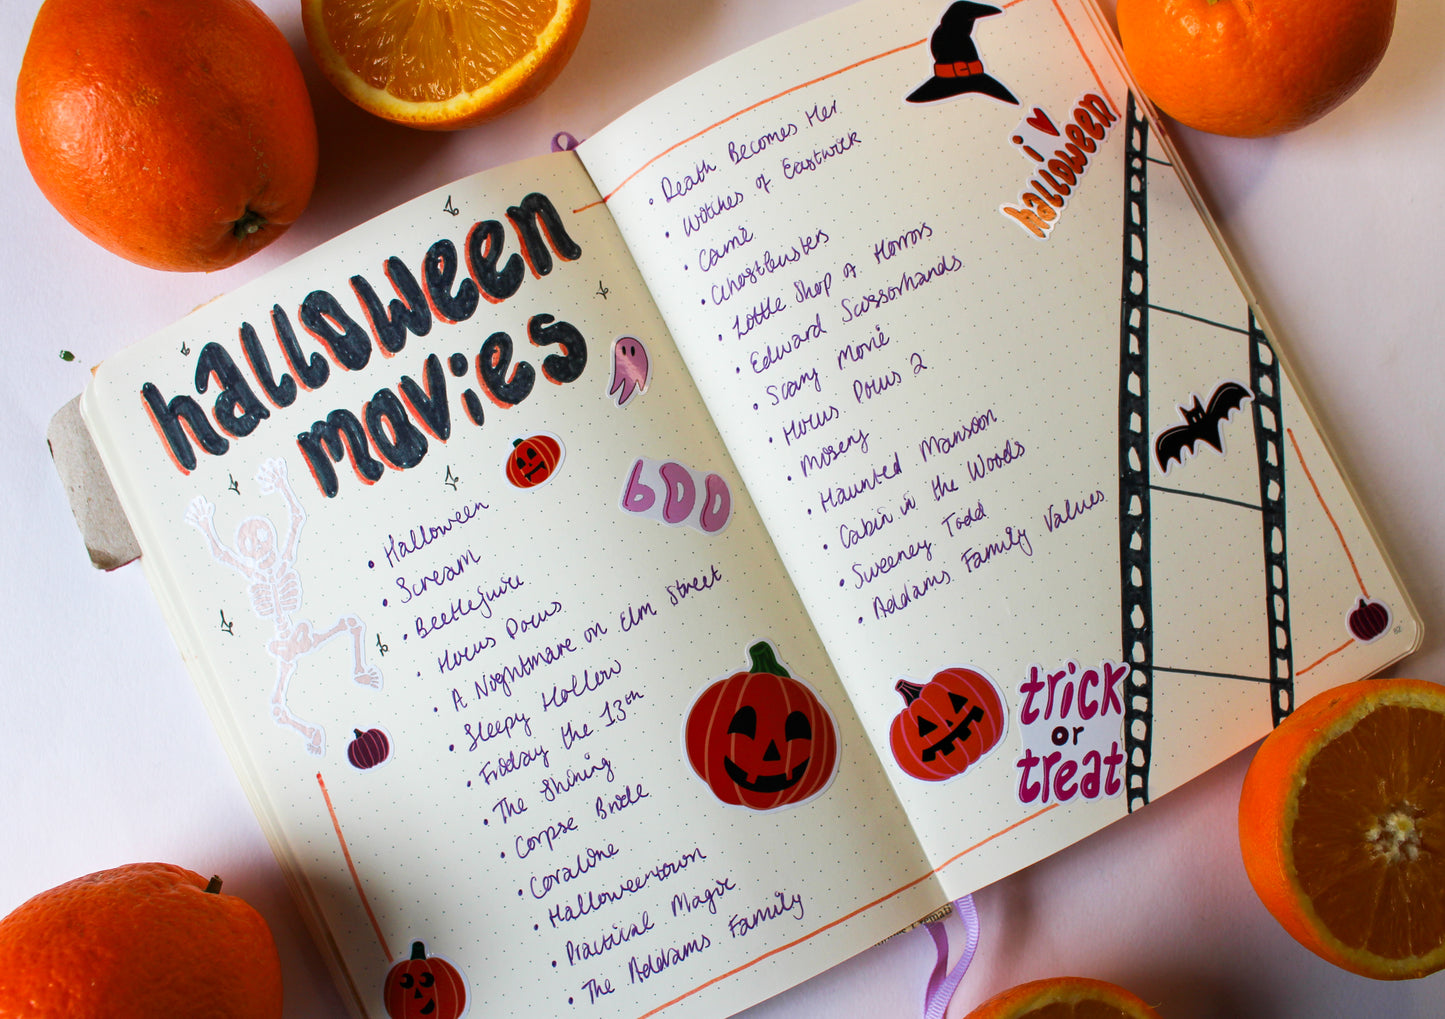 halloween
movies
boo
• Halloween
• Scream
• Beetlejuice
• Hocus Pocus
• A Nightmare on Elm Street
• Sleepy Hollow
• Friday the 13th
• The Shining
• Corpse Bride
• Coraline
• Halloweentown
• Practical Magic
• The Addams Family
• Death Becomes Her
• Witches of Eastwick
• Carrie
• Ghostbusters
• Little Shop of Horrors
• Edward Scissorhands
• Scary Movie
• Hocus Pocus 2
• Misery
• Haunted Mansion
• Cabin in the Woods
• Sweeney Todd
• Addams Family Values
i ♥
halloween
trick
or
treat